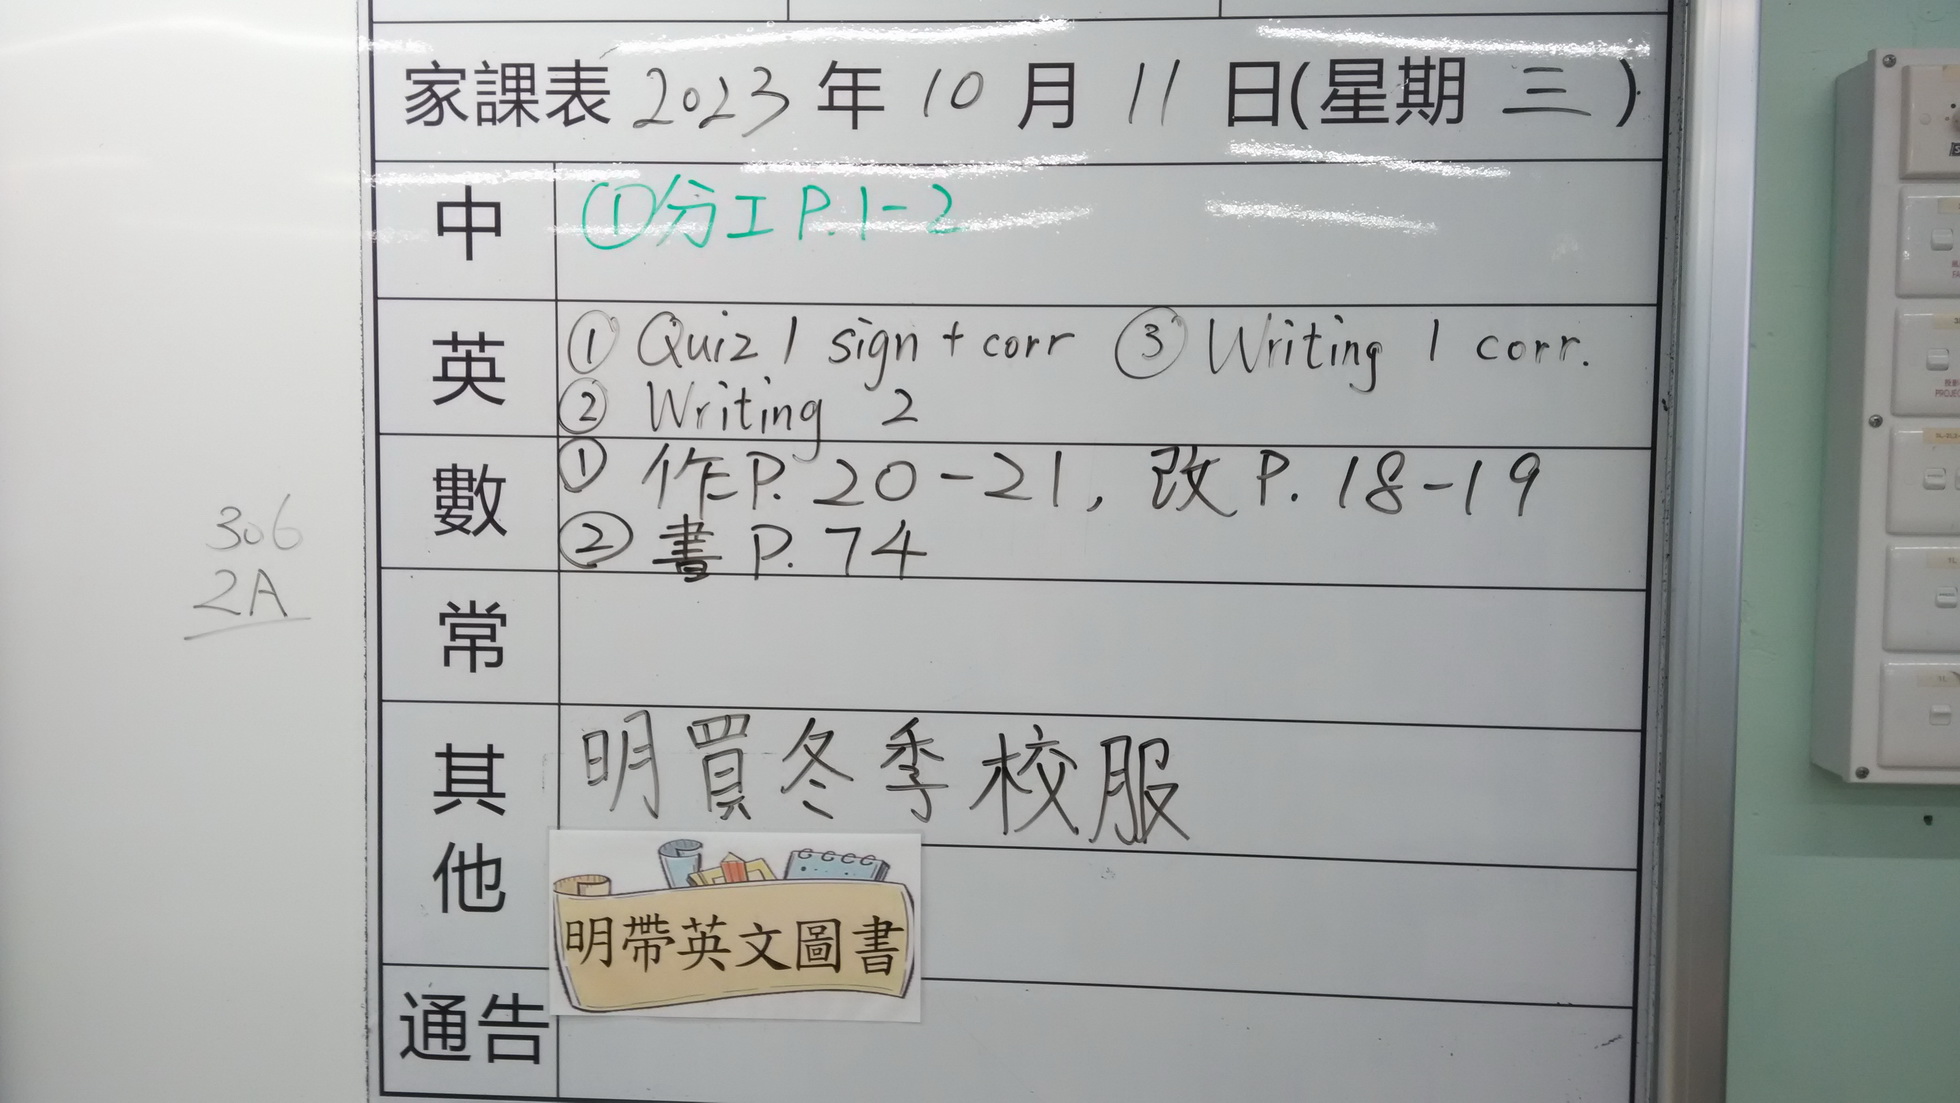 家課表 2023 年 10 月 11 日(星期 三 )
中 ①分工 P.1-2
英 ① Quiz 1 sign + corr ③ Writing 1 corr.
② Writing 2
數 ① 作P. 20-21, 改 P. 18-19
② 書 P. 74
常
其他 明買冬季校服
明帶英文圖書
通告
306
2A